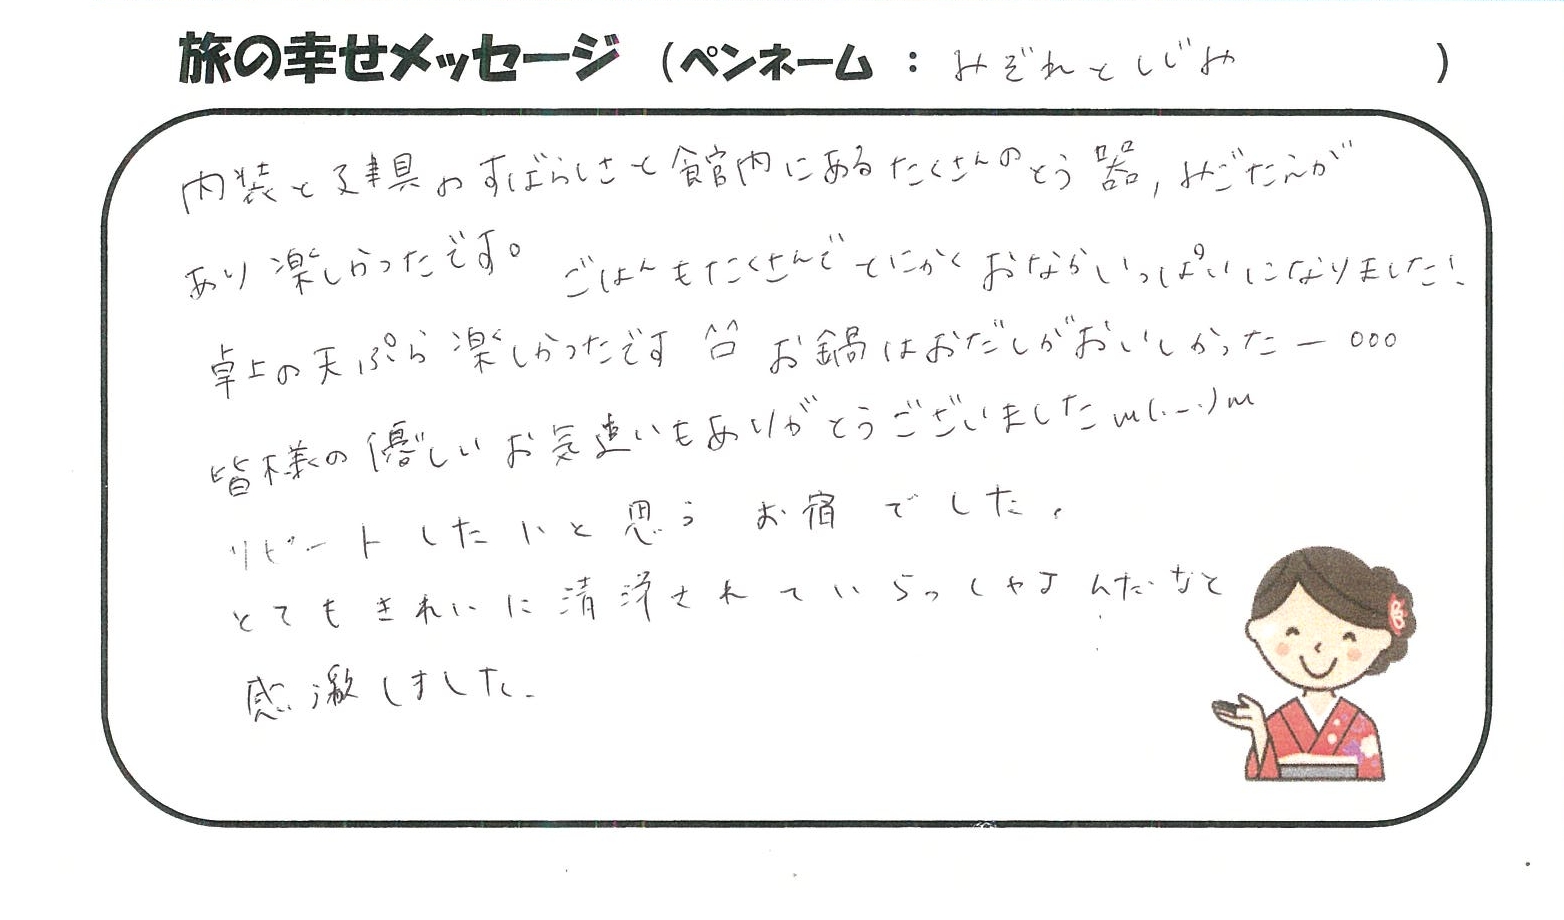 旅の幸せメッセージ (ペンネーム : みぞれとしじみ )
内装と建具のすばらしさと館内にあるたくさんのとう器, みごたえが
あり楽しかったです。ごはんもたくさんでとにかくおなかいっぱいになりました!
卓上の天ぷら楽しかったです ^^ お鍋はおだしがおいしかったー ooo
皆様の優しいお気遣いもありがとうございました m(.-.)m
リピートしたいと思うお宿でした.
とてもきれいに清浄されていらっしゃるんだなと
感激しました.